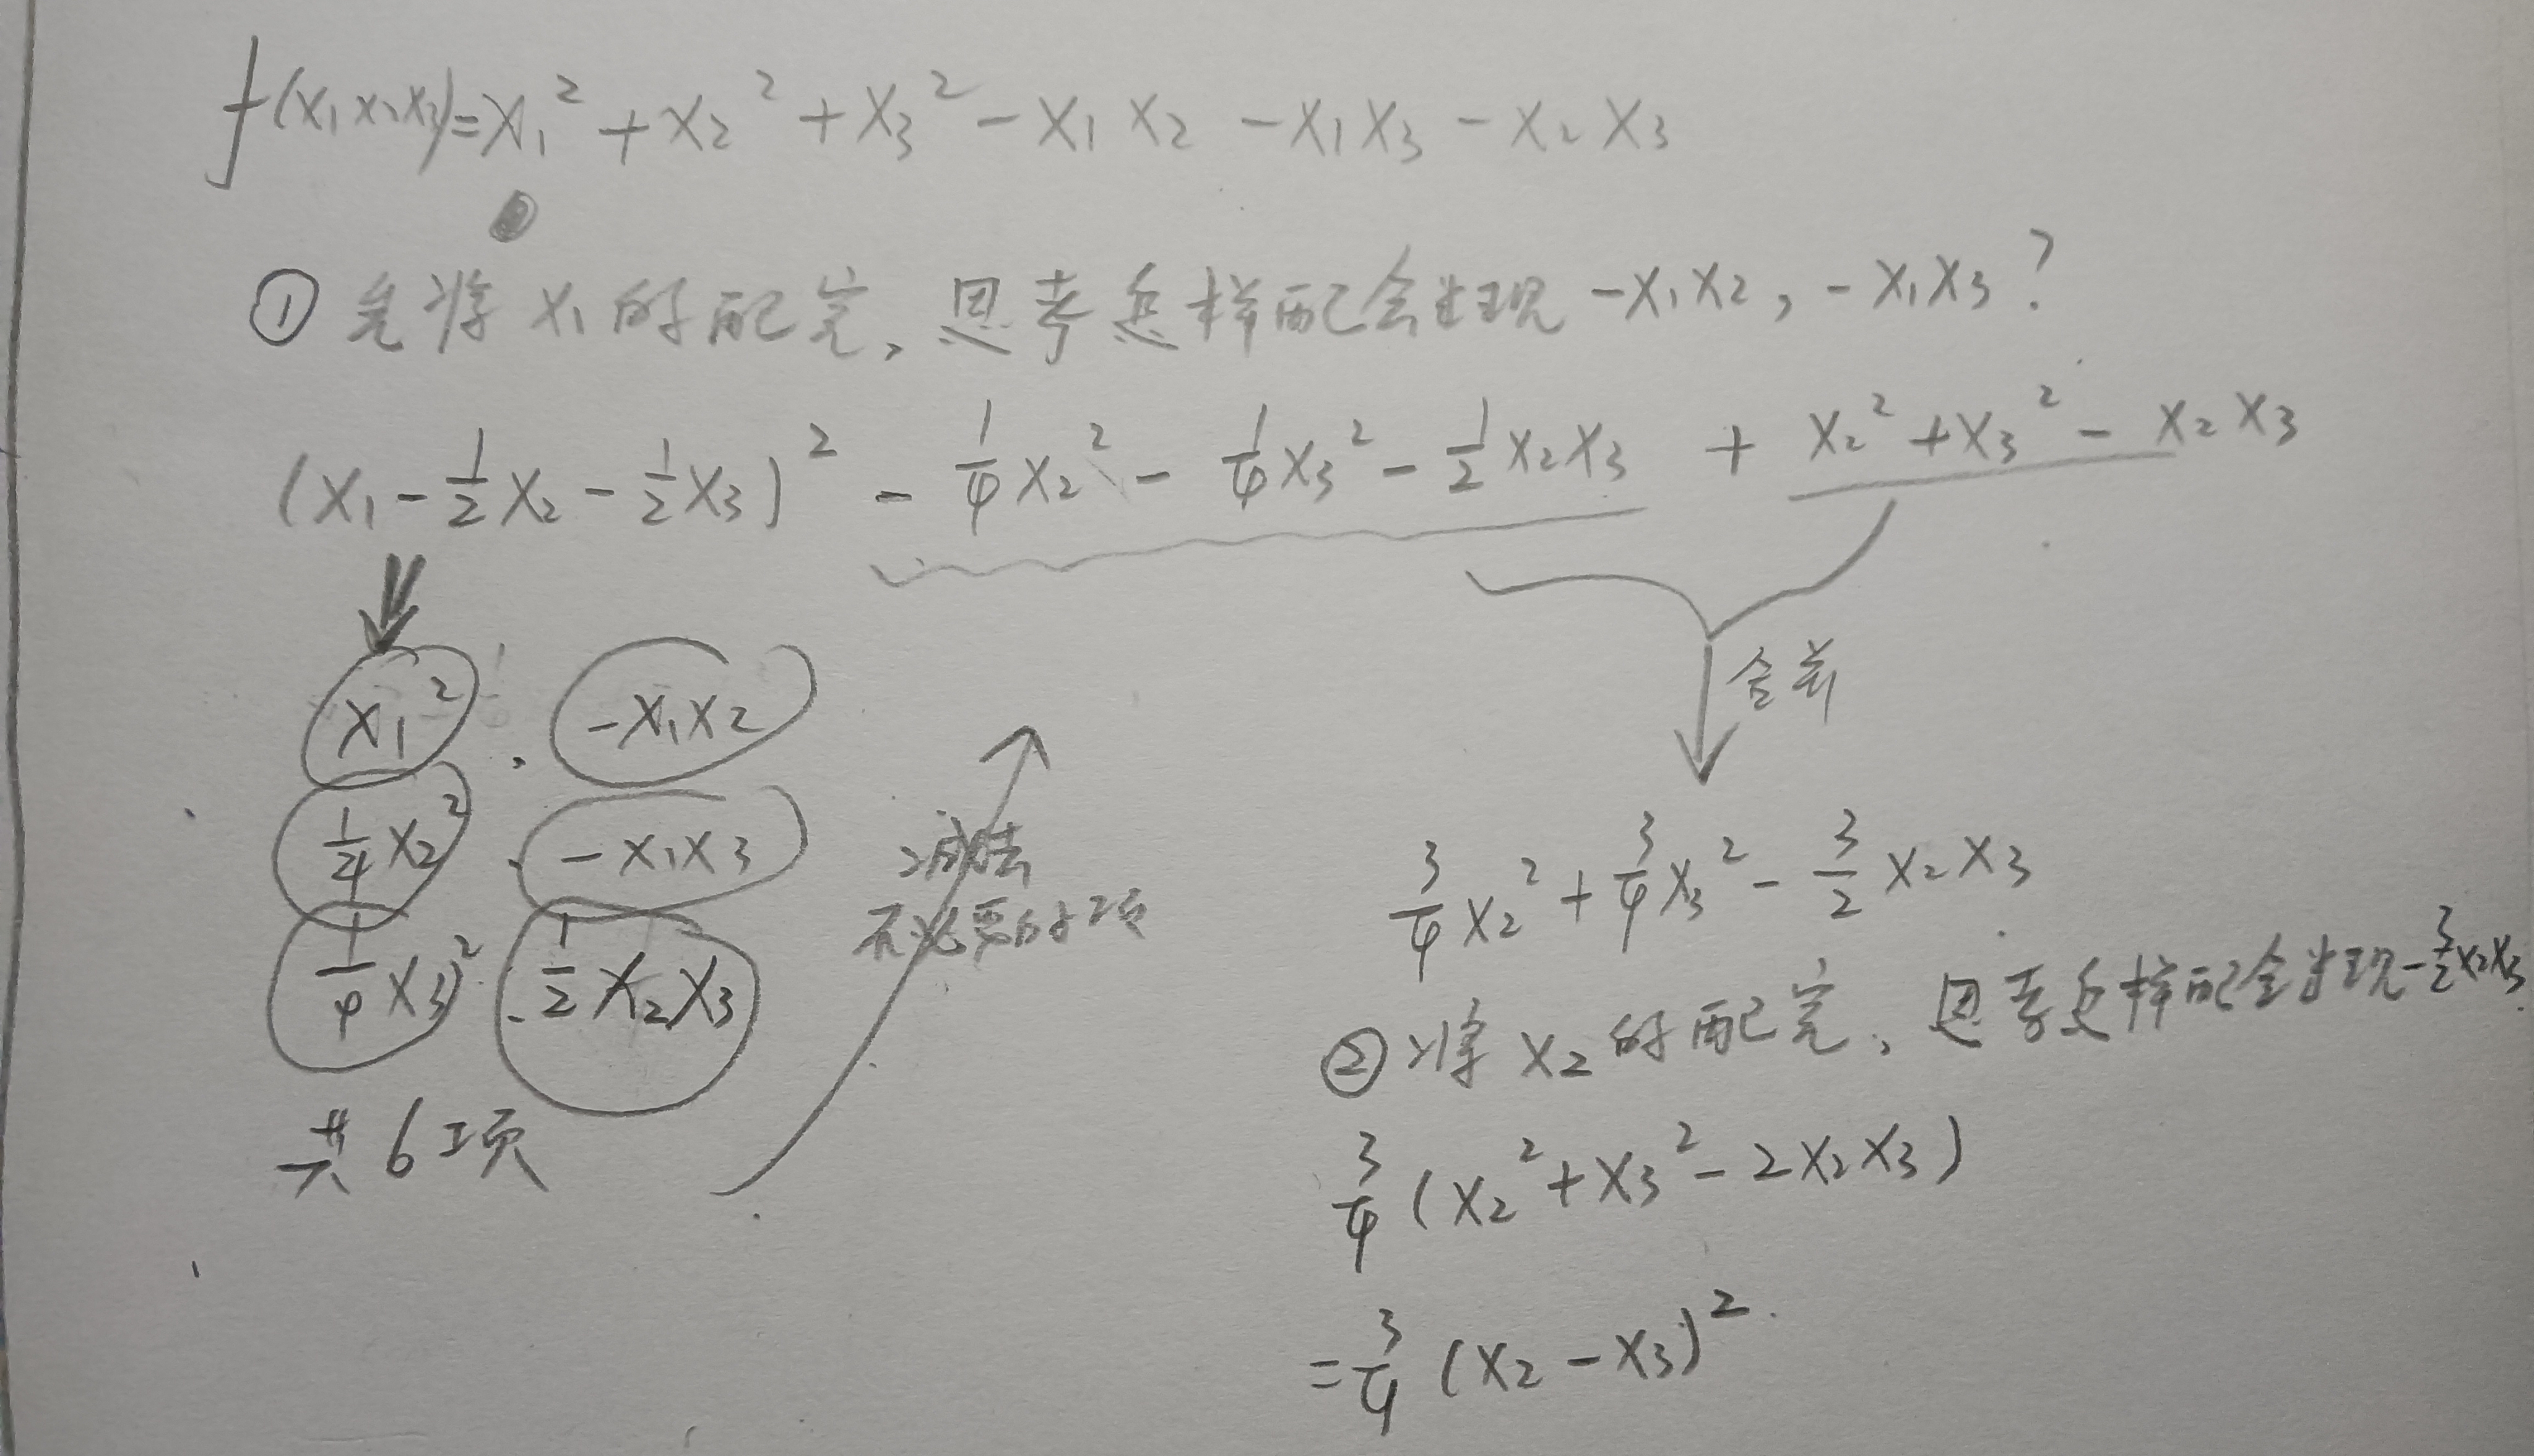 f(x₁x₂x₃)=x₁²+x₂²+x₃²-x₁x₂-x₁x₃-x₂x₃
① 先将x₁的配完,思考怎样配会出现-x₁x₂,-x₁x₃?
(x₁-½x₂-½x₃)²-¼x₂²-¼x₃²-½x₂x₃+x₂²+x₃²-x₂x₃
x₁², -x₁x₂
¼x₂², -x₁x₃
¼x₃², ½x₂x₃
共6项
减去
不必要的项
合并
¾x₂²+¾x₃²-3/2x₂x₃
② 将x₂的配完,思考怎样配会出现-3/2x₂x₃
¾(x₂²+x₃²-2x₂x₃)
=¾(x₂-x₃)².